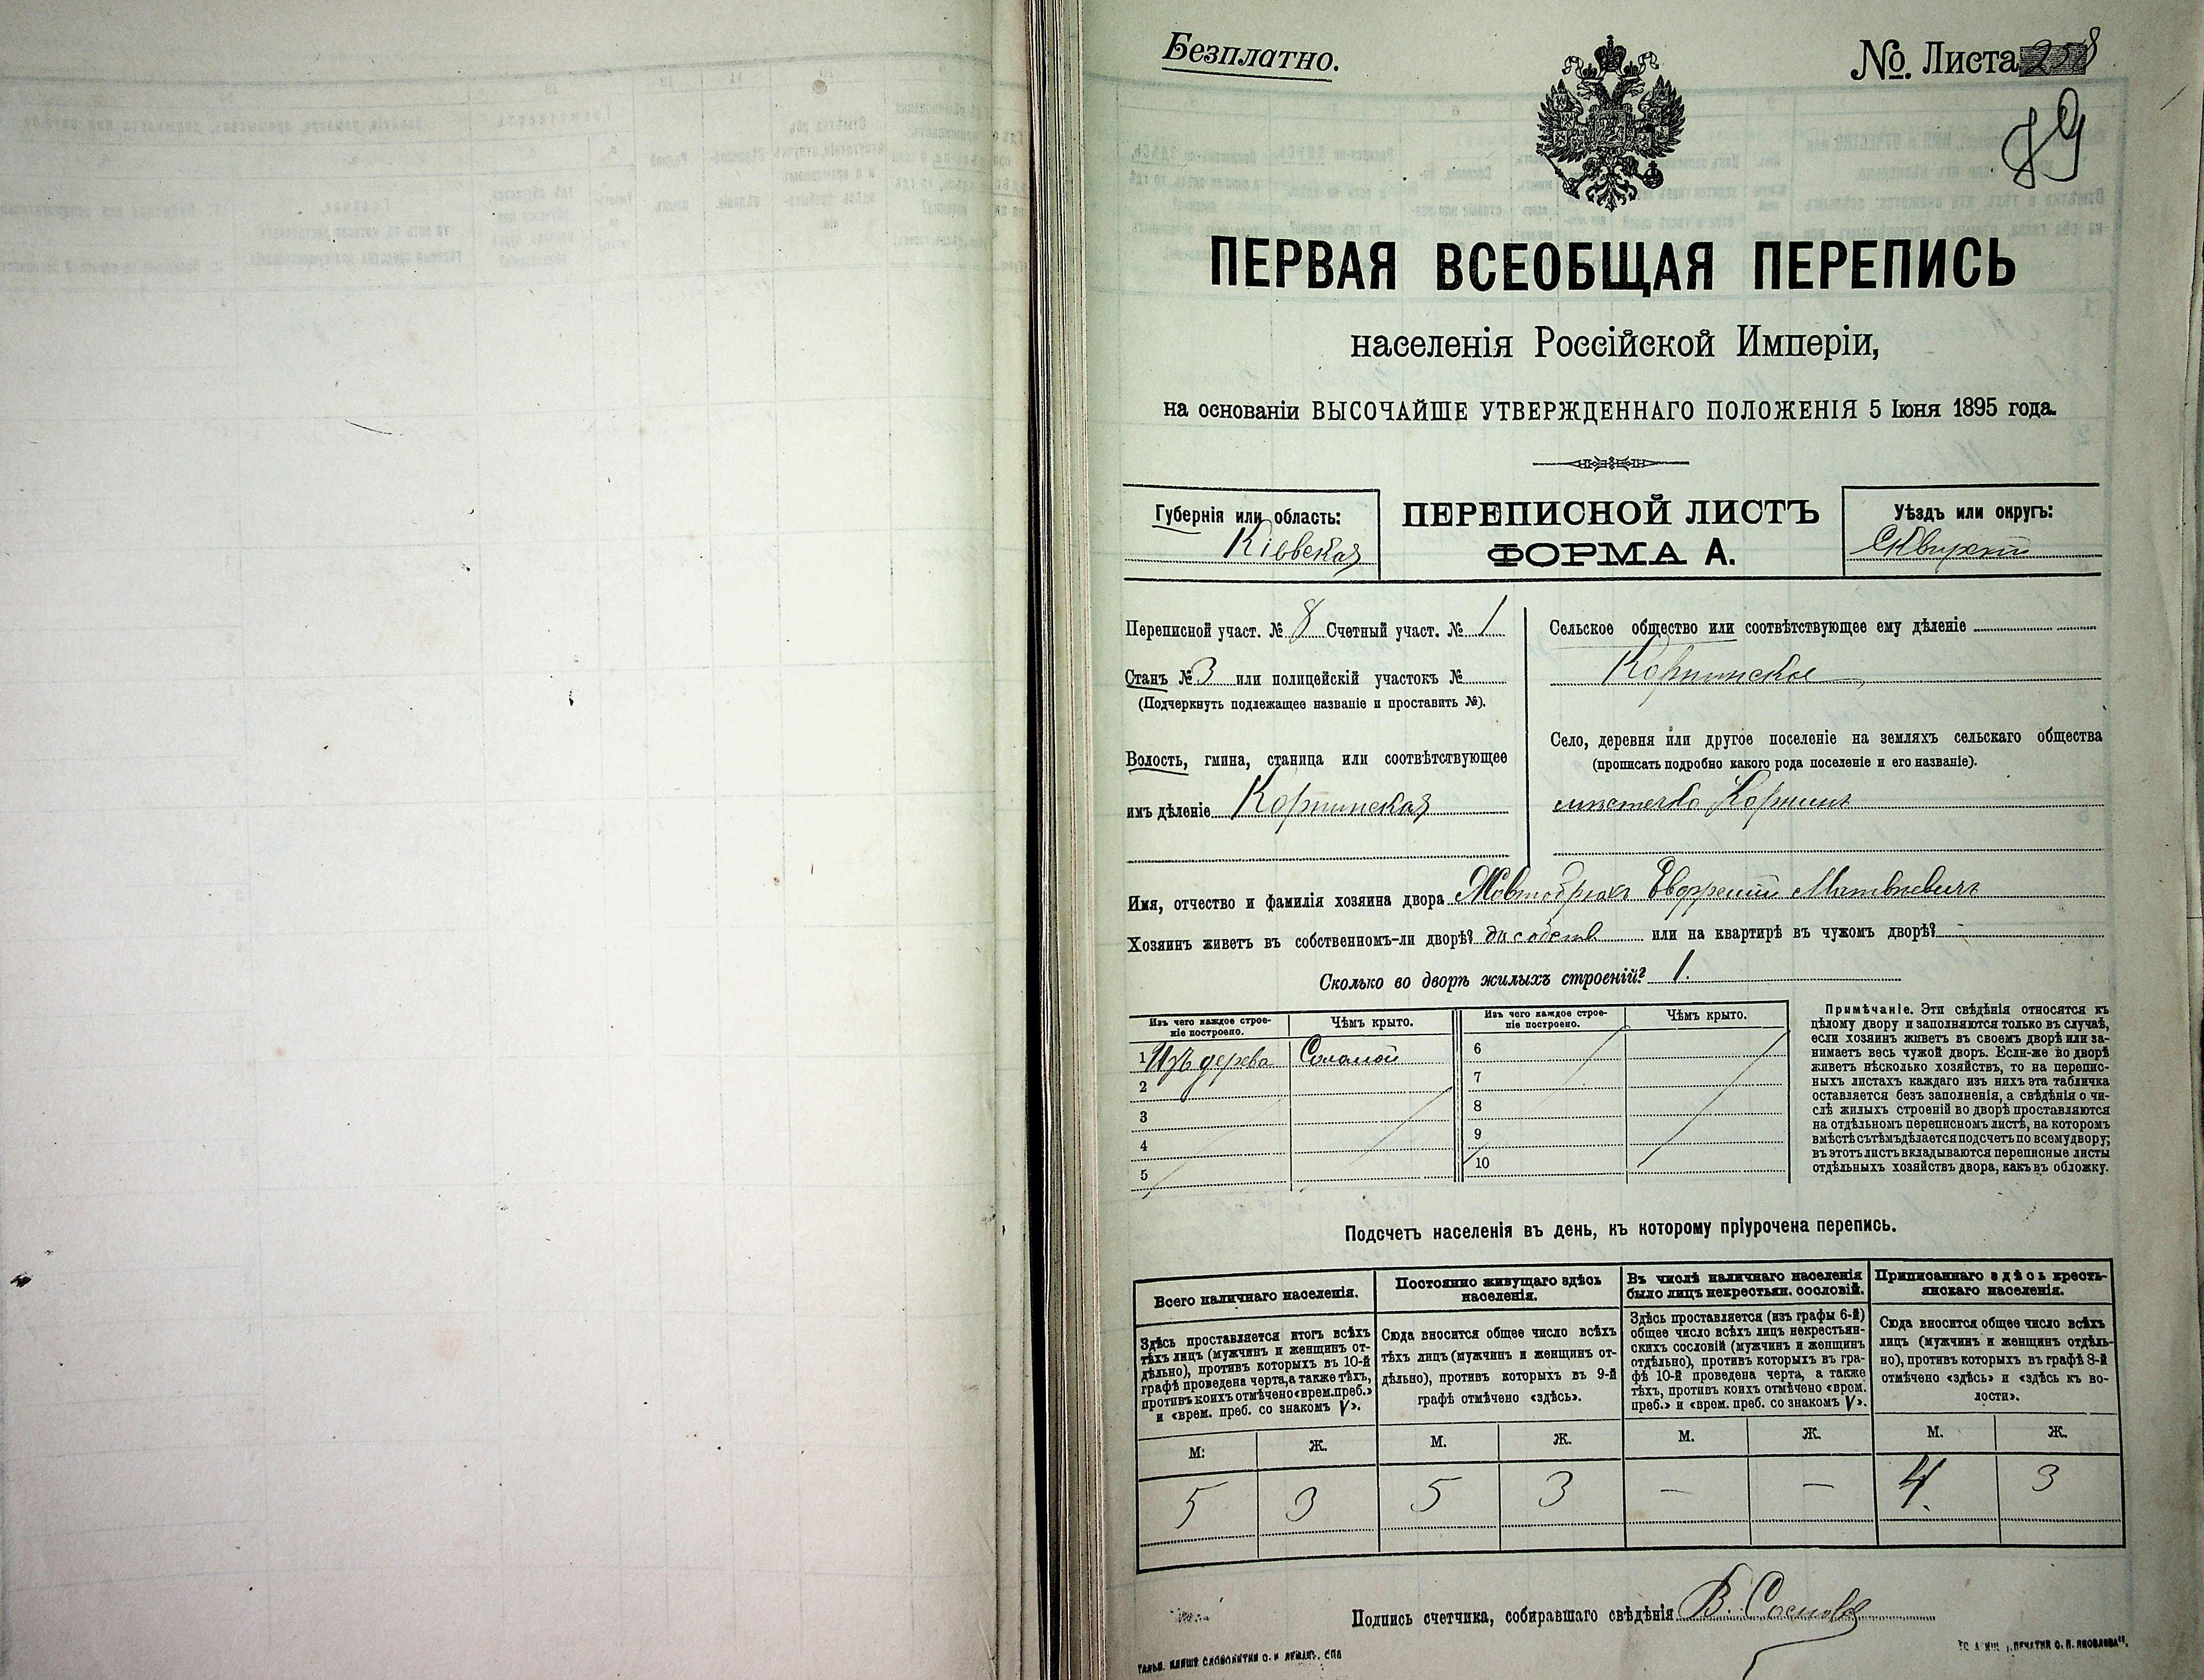 Безплатно.
№ Листа 258
89
ПЕРВАЯ ВСЕОБЩАЯ ПЕРЕПИСЬ
населенія Россійской Имперіи,
на основаніи ВЫСОЧАЙШЕ УТВЕРЖДЕННАГО ПОЛОЖЕНІЯ 5 Іюня 1895 года.
Губернія или область:
Кіевская
ПЕРЕПИСНОЙ ЛИСТЪ
ФОРМА А.
Уѣздъ или округъ:
Сквирскій
Переписной участ. № 8 Счетный участ. № 1
Станъ № 3 или полицейскій участокъ №
(Подчеркнуть подлежащее названіе и проставить №).
Волость, гмина, станица или соотвѣтствующее
имъ дѣленіе Корнинская
Сельское общество или соотвѣтствующее ему дѣленіе
Корнинское
Село, деревня или другое поселеніе на земляхъ сельскаго общества
(прописать подробно какого рода поселеніе и его названіе).
мѣстечко Корнинъ
Имя, отчество и фамилія хозяина двора Жовтобрюхъ Матвѣевичъ
Хозяинъ живетъ въ собственномъ-ли дворѣ? или на квартирѣ въ чужомъ дворѣ? -
Сколько во дворѣ жилыхъ строеній? 1.
Изъ чего каждое строе-
ніе построено.
Чѣмъ крыто.
Изъ чего каждое строе-
ніе построено.
Чѣмъ крыто.
1 Изъ дерева Соломой
2
3
4
5
6
7
8
9
10
Примѣчаніе. Эти свѣдѣнія относятся къ
цѣлому двору и заполняются только въ случаѣ,
если хозяинъ живетъ въ своемъ дворѣ или за-
нимаетъ весь чужой дворъ. Если-же во дворѣ
живетъ нѣсколько хозяйствъ, то на перепис-
ныхъ листахъ каждаго изъ нихъ эта табличка
оставляется безъ заполненія, а свѣдѣнія о чи-
слѣ жилыхъ строеній во дворѣ проставляются
на отдѣльномъ переписномъ листѣ, на которомъ
вмѣстѣ съ тѣмъ дѣлается подсчетъ по всему двору;
въ этотъ листъ вкладываются переписные листы
отдѣльныхъ хозяйствъ двора, какъ въ обложку.
Подсчетъ населенія въ день, къ которому пріурочена перепись.
Всего наличнаго населенія.
Здѣсь проставляется итогъ всѣхъ
тѣхъ лицъ (мужчинъ и женщинъ от-
дѣльно), противъ которыхъ въ 10-й
графѣ проведена черта, а также тѣхъ,
противъ коихъ отмѣчено «врем. преб.»
и «врем. преб. со знакомъ V».
Постоянно живущаго здѣсь
населенія.
Сюда вносится общее число всѣхъ
тѣхъ лицъ (мужчинъ и женщинъ от-
дѣльно), противъ которыхъ въ 9-й
графѣ отмѣчено «здѣсь».
Въ числѣ наличнаго населенія
было лицъ некрестьян. сословій.
Здѣсь проставляется (изъ графы 6-й)
общее число всѣхъ лицъ некрестьян-
скихъ сословій (мужчинъ и женщинъ
отдѣльно), противъ которыхъ въ гра-
фѣ 10-й проведена черта, а также
тѣхъ, противъ коихъ отмѣчено «врем.
преб.» и «врем. преб. со знакомъ V».
Приписаннаго здѣсь кресть-
янскаго населенія.
Сюда вносится общее число всѣхъ
лицъ (мужчинъ и женщинъ отдѣль-
но), противъ которыхъ въ графѣ 8-й
отмѣчено «здѣсь» и «здѣсь къ во-
лости».
М. Ж. М. Ж. М. Ж. М. Ж.
5 3 5 3 — — 4. 3
Подпись счетчика, собиравшаго свѣдѣнія В.